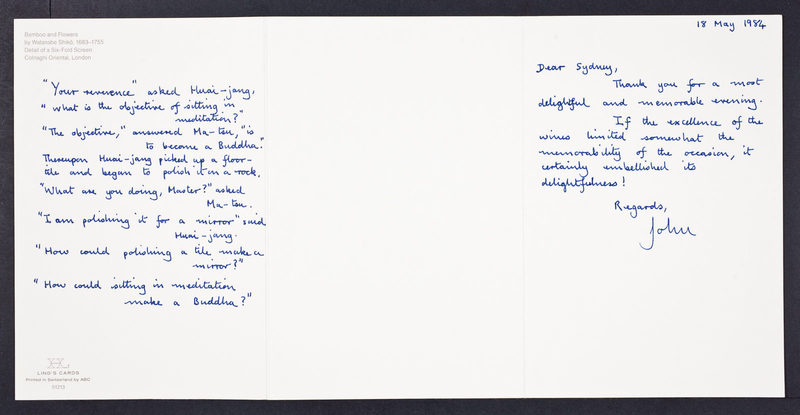 Bamboo and Flowers
by Watanabe Shikō, 1683–1755
Detail of a Six-Fold Screen
Colnaghi Oriental, London
"Your reverence" asked Huai-jang,
"what is the objective of sitting in
meditation?"
"The objective," answered Ma-tsu, "is
to become a Buddha."
Thereupon Huai-jang picked up a floor-
tile and began to polish it on a rock.
"What are you doing, Master?" asked
Ma-tsu.
"I am polishing it for a mirror" said
Huai-jang.
"How could polishing a tile make a
mirror?"
"How could sitting in meditation
make a Buddha?"
LING'S CARDS
Printed in Switzerland by ABC
51213
18 May 1984
Dear Sydney,
Thank you for a most
delightful and memorable evening.
If the excellence of the
wines limited somewhat the
memorability of the occasion, it
certainly embellished its
delightfulness!
Regards,
John